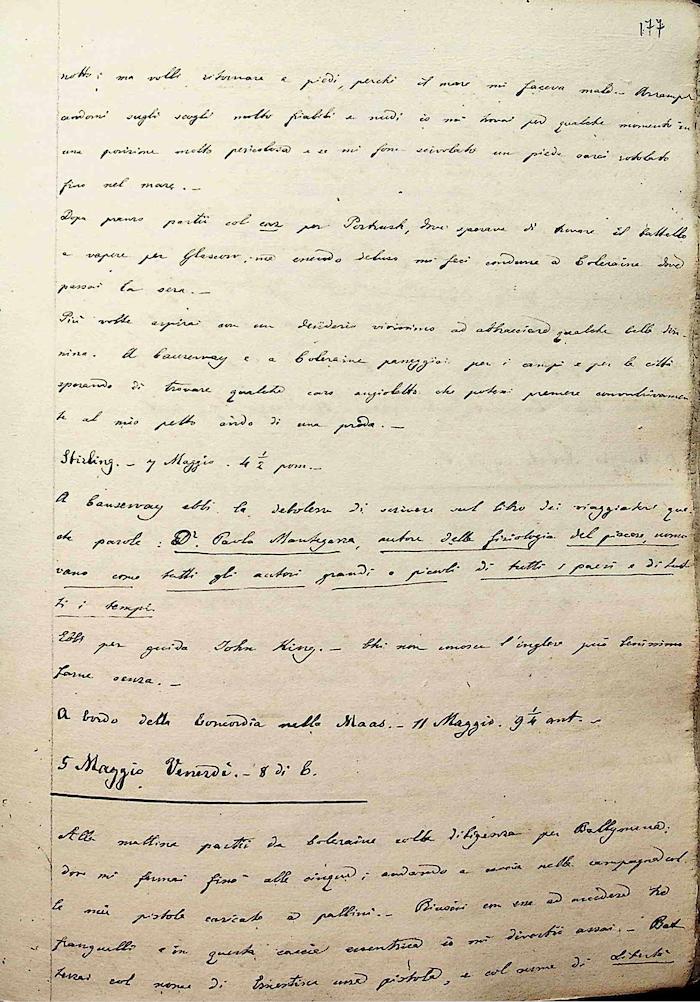 177
notti; ma volli ritornare a piedi, perchè il mare mi faceva male. - Arramp
candomi sugli scogli molto friabili e nudi io mi trovai per qualche momento in
una posizione molto pericolosa e se mi fosse scivolato un piede sarei rotolato
fino nel mare. -
Dopo pranzo partii col car per Portrush, dove sperava di trovare il battello
a vapore per Glascow; ma essendo deluso mi feci condurre a Coleraine dove
passai la sera. -
Più volte aspirai con un desiderio vivissimo ad abbracciare qualche bella don-
nina. A Causerway e a Coleraine passeggiai per i campi e per la città
sperando di trovare qualche caro angioletto che potessi premere convulsivamen
te al mio petto avido di una preda. -
Stirling. - 7 Maggio. 4 1/2 pom. -
A Causerway ebbi la debolezza di scrivere sul libro dei viaggiatori que-
ste parole: Dr. Paolo Mantegazza, autore della fisiologia del piacere, uomo
vano come tutti gli autori grandi e piccoli di tutti i paesi e di tut
ti i tempi.
Ebbi per guida John King. - Chi non conosce l'inglese può benissimo
farne senza. -
A bordo della Concordia nella Maas. - 11 Maggio. 9 1/4 ant. -
5 Maggio Venerdì. - 8 di b.
Alla mattina partii da Coleraine colla diligenza per Ballymena;
dove mi fermai fino alle cinque; andando a caccia nelle campagne col
le mie pistole caricate a pallini. - Riuscii con esse ad uccidere tre
franguelli e in questa caccia eccentrica io mi divertii assai. - Bat
tezzai col nome di Ernestina una pistola, e col nome di Libertà